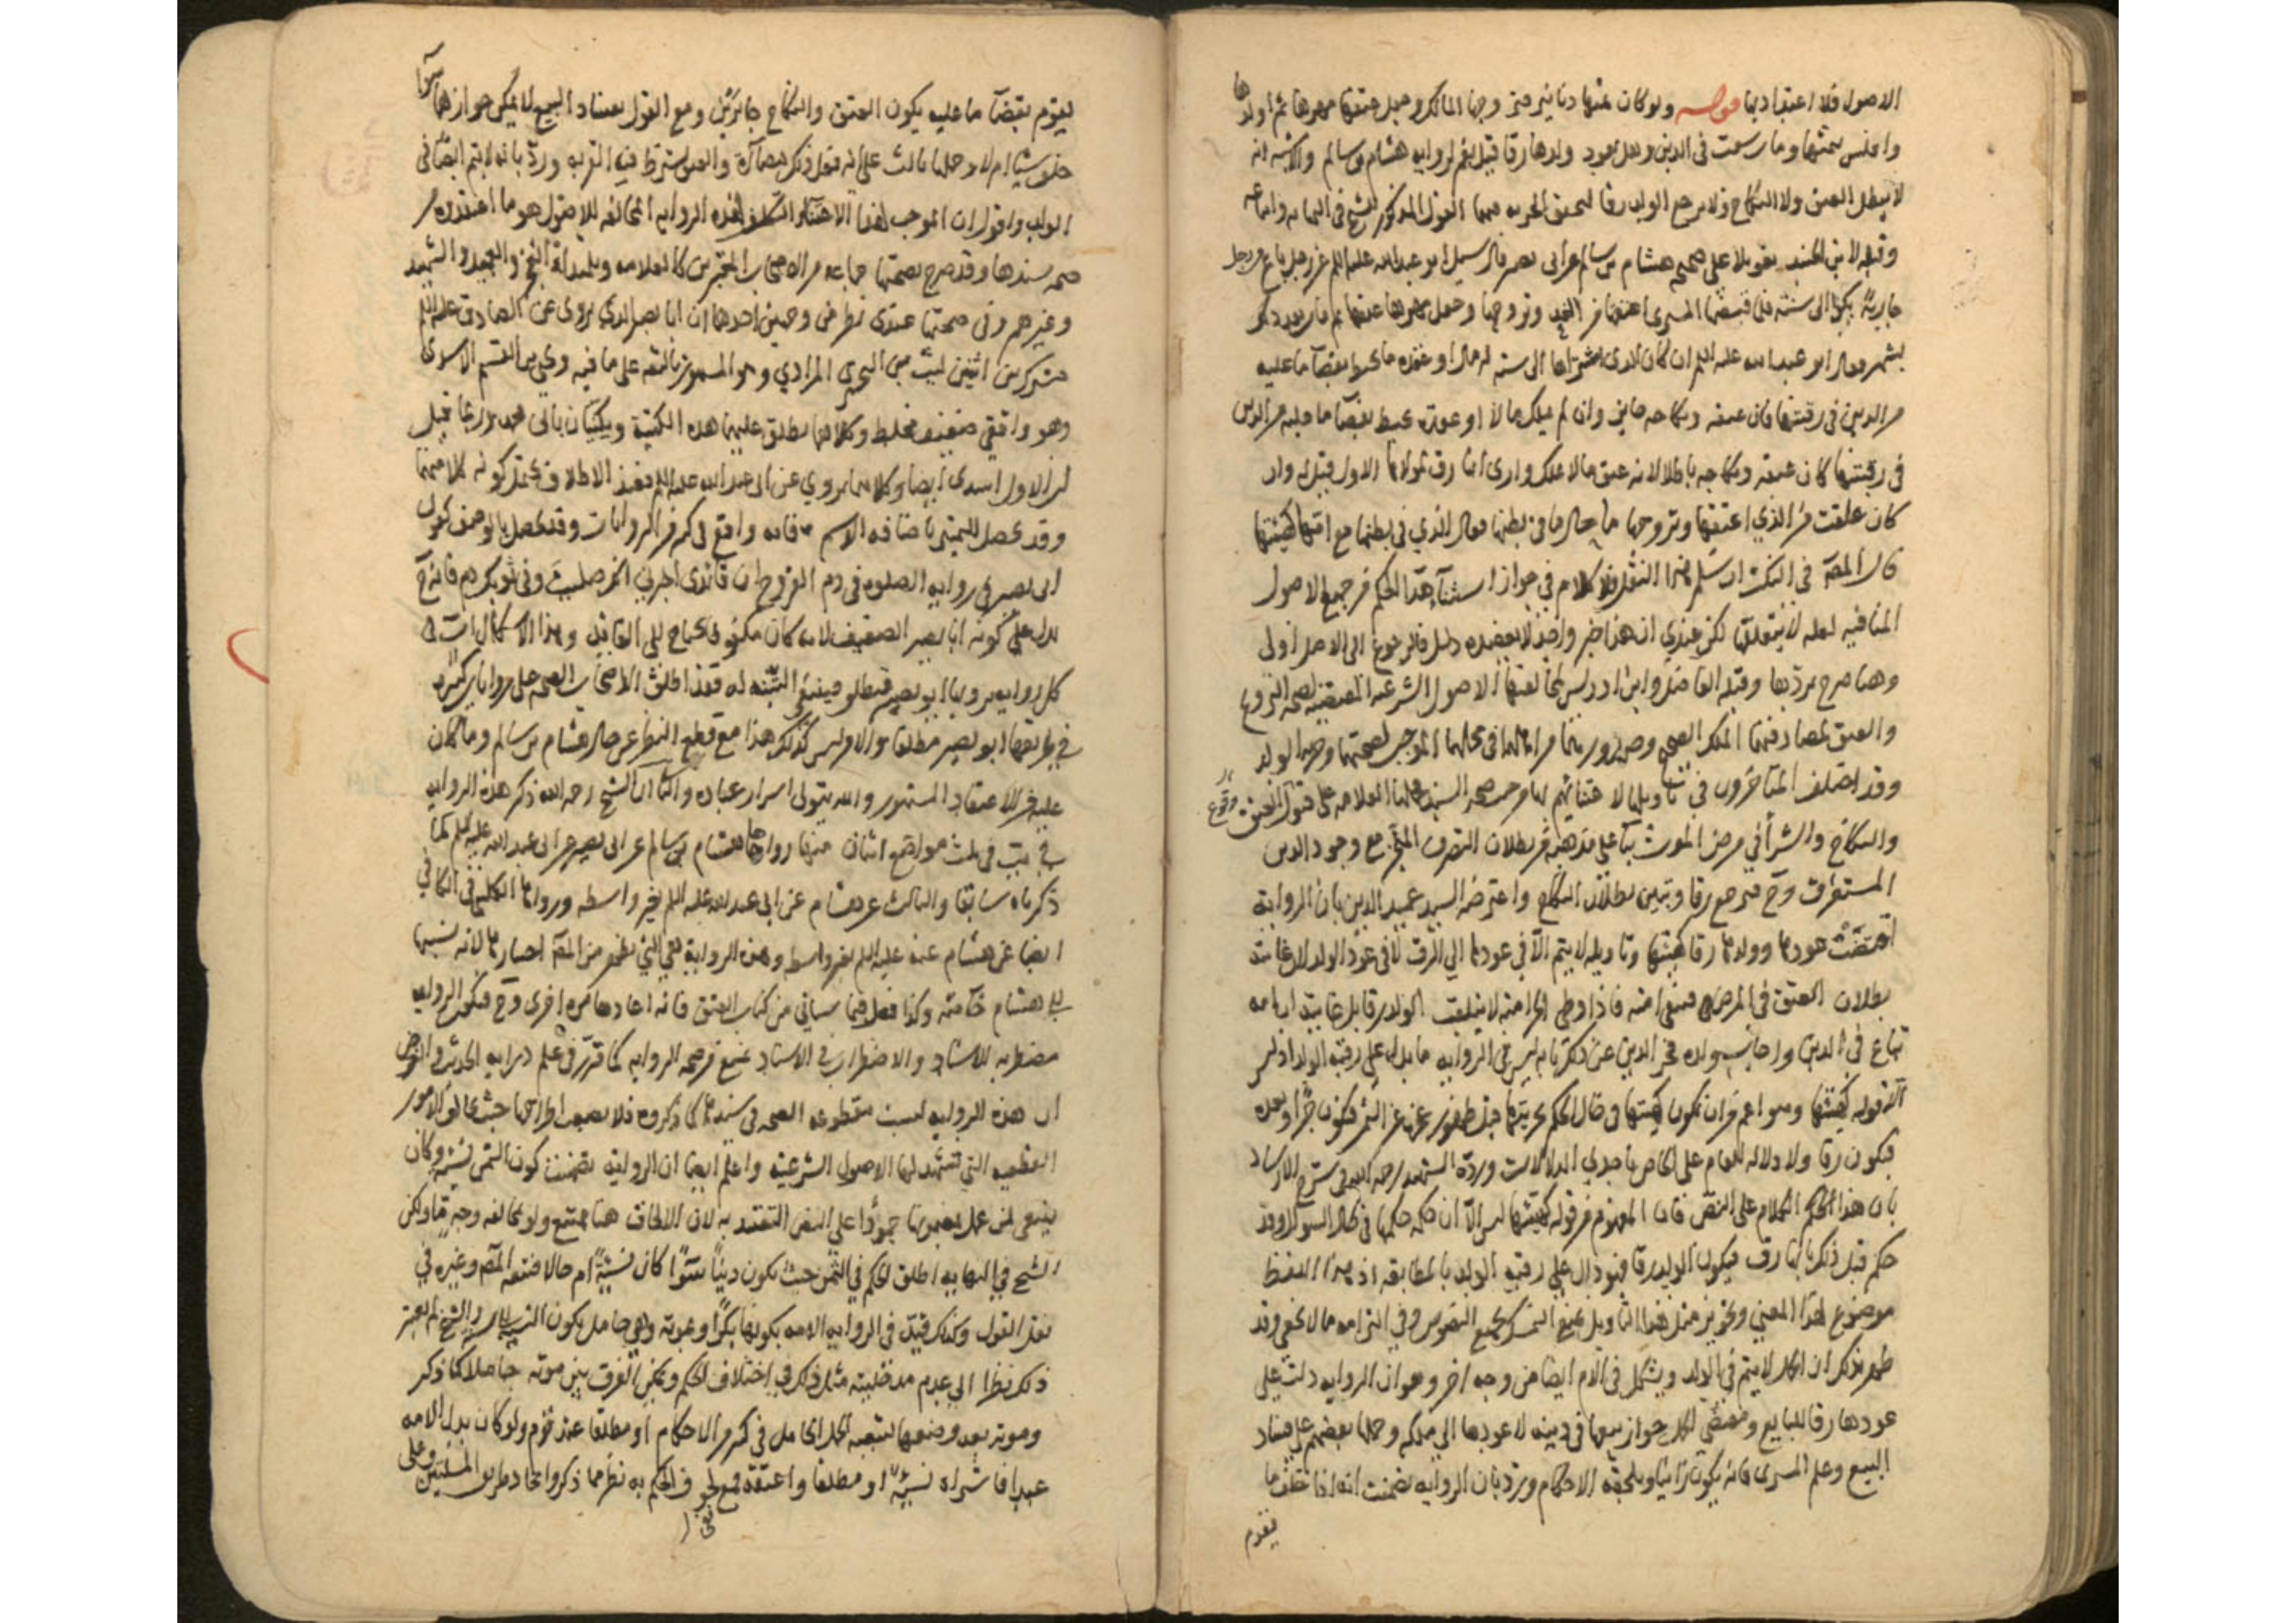 الاصول فلا اعتداد بها قوله ولو كان ثمنها دينا فتزوجها المالك وجعل عتقها مهرها ثم اولدها
وافلس بثمنها وما رسمت في الدين وهل يعود ولدها رقا قيل نعم لرواية هشام بن سالم والاشبه انه
لا يبطل العتق ولا النكاح ولا يرجع الولد رقا لتحقق الحرية فيهما القول المذكور للشيخ في النهاية واتباعه
وقبله لابن الجنيد تعويلا على صحيحة هشام بن سالم عن ابي بصير قال سئل ابو عبد الله عليه السلم عن رجل باع من رجل
جارية بكرا الى سنة فلما قبضها المشتري اعتقها من الغد وتزوجها وجعل مهرها عتقها ثم مات بعد ذلك
بشهر فقال ابو عبد الله عليه السلم ان كان الذي اشتراها الى سنة له مال او عقدة ما يحيط بقضآ ما عليه
من الدين في رقبتها فان عتقه ونكاحه جايز وان لم يملك مالا او عقدة تحيط بقضآ ما عليه من الدين
في رقبتها كان عتقه ونكاحه باطلا لانه عتق ما لا يملك وارى انها رق لمولاها الاول قيل له وان
كان علقت من الذي اعتقها وتزوجها ما حال ما في بطنها فقال الذي في بطنها مع امه كهيئتها
قال المصـ في النكت ان سلم هذا النقل فلا كلام في جواز استثنآء هذا الحكم من جميع الاصول
المنافية لعله لا نتعقلها لكن عندي ان هذا خبر واحد لا يعضده دليل فالرجوع الى الاصل اولى
وهنا صرح بردها وقبله الفاضل وابن ادريس لمخالفتها الاصول الشرعية المقتضية لصحة التزويج
والعتق لمصادفتهما الملك الصحيح وصدورهما من اهلهما في محلهما الموجب لصحتهما وحرية الولد
وقد اختلف المتاخرون في تاويلها لاعتنائهم بها من حيث صحة السند فحملها العلامة على وقوع العتق
والنكاح والشرآ في مرض الموت بنآ على مذهبه من بطلان التصرف المنجز مع وجود الدين
المستغرق وح فترجع رقا وتبين بطلان النكاح واعترضه السيد عميد الدين بان الرواية
اقتضت عودها وولدها رقا كهيئتها وتاويله لا يتم الا في عودها الى الرق لا في عود الولد لان غايته
بطلان العتق في المرض فتبقى امته فاذا وطئ الحر امته لا ينعقد الولد رقا بل غايته ان امه
تباع في الدين واجاب ولده فخر الدين عن ذلك بانه ليس في الرواية ما يدل على رقية الولد اذ ليس
الا قوله كهيئتها وهو اعم من ان تكون كهيئتها في حال الحكم بحريتها قبل ظهور عجزه عن الثمن فيكون حرا او بعده
فيكون رقا ولا دلالة للعام على الخاص باحدى الدلالات ورده الشهيد رحمه الله في شرح الارشاد
بان هذا الحكم الكلام على النص فان المفهوم من قوله كهيئتها ليس الا ان حكمه حكمها في حال السؤال وقد
حكم قبل ذلك بانها رق فيكون الولد رقا فهو دال على رقية الولد بالمطابقة اذ هذا اللفظ
موضوع لهذا المعنى وتجويز مثل هذا التاويل يمنع التمسك بجميع النصوص وفي التزامه ما لا يخفى وقد
ظهر بذلك ان الحمل لا يتم في الولد ويشكل في الام ايضا من وجه اخر وهو ان الرواية دلت على
عودها رقا للبايع ومقتضى الحمل جواز بيعها في دينه لا عودها الى ملكه وحملها بعضهم على فساد
البيع وعلم المشتري فانه يكون زانيا ويلحقه الاحكام ويرد بان الرواية تضمنت انه اذا خلف ما
يقوم
يقوم بقضآ ما عليه يكون العتق والنكاح جايزين ومع القول بفساد البيع لا يمكن جوازهما سوآء
خلف شيئا ام لا وحملها ثالث على انه فعل ذلك مضارة والعتق يشترط فيه القربة ورد بانه لا يتم ايضا في
الولد واقول ان الموجب لهذا الاعتنآء والتكلف لهذه الرواية المخالفة للاصول هو ما اعتقدوه من
صحة سندها وقد صرح بصحتها جماعة من الاصحاب المعتبرين كالعلامة وتلميذاه الفخر والعميد والشهيد
وغيرهم وفي صحتها عندي نظر من وجهين احدهما ان ابا بصير الذي يروي عن الصادق عليه السلم
مشترك بين اثنين ليث بن البختري المرادي وهو المشهور بالثقة على ما فيه ويحيى بن القسم الاسدي
وهو واقفي ضعيف مخلط وكلاهما يطلق عليهما هذه الكنية ويكنيان بابي محمد وربما قيل
ان الاول اسدي ايضا وكلاهما يروي عن ابي عبد الله عليه السلم فعند الاطلاق يحتمل كونه كلا منهما
وقد يحصل التميز باضافة الاسم فانه واقع في كثير من الروايات وقد يحصل بالوصف كقول
ابي بصير في رواية الصلوة في دم القروح ان قائدي اخبرني انك صليت وفي ثوبك دم فانه ح
يدل على كونه ابا بصير الضعيف لانه كان مكفوفا يحتاج الى القائد وهذا الاشكال ات في
كل رواية يرويها ابو بصير فتطلق فينبغي التنبه له فقد اطلق الاصحاب الصحة على روايات كثيرة
في طريقها ابو بصير مطلقا والامر ليس كذلك هذا مع قطع النظر عن حال هشام بن سالم وما كان
عليه من الاعتقاد المشهور والله يتولى اسرار عباده والثاني ان الشيخ رحمه الله ذكر هذه الرواية
في التهذيب في ثلث مواضع اثنان منها رواها هشام بن سالم عن ابي بصير عن ابي عبد الله عليه السلم كما
ذكرناه سابقا والثالث عن هشام عن ابي عبد الله عليه السلم بغير واسطة ورواها الكليني في الكافي
ايضا عن هشام عنه عليه السلم بغير واسطة وهذه الرواية هي التي يظهر من المصـ اختيارها لانه نسبها
الى هشام خاصة وكذا فعل فيما سياتي من كتاب العتق فانه اعادها مرة اخرى وح فتكون الرواية
مضطربة الاسناد والاضطراب في الاسناد يمنع من صحة الرواية كما قرر في علم دراية الحديث والغرض
ان هذه الرواية ليست مقطوعة الصحة في سندها كما ذكروه فلا يصعب اطراحها حيث يخالف الامور
القطعية التي تشهد لها الاصول الشرعية واعلم ايضا ان الرواية تضمنت كون الثمن نسية وكان
ينبغي لمن عمل بمضمونها جمودا على النص التقيد به لان الالحاق هنا ممتنع ولو بمخالفة وجه ما ولكن
الشيخ في النهاية اطلق الحكم في الثمن حيث يكون دينا سوآء كان نسية ام حالا فتبعه المصـ وغيره في
نقل القول وكذلك قيد في الرواية الامة بكونها بكرا
ذلك نظرا الى عدم مدخلية مثل ذلك في اختلاف الحكم ويمكن الفرق بين موته حاملا كما ذكر
وموته بعد وضعها لتبعية الحمل للحامل في كثير من الاحكام او مطلقا عند قوم ولو كان بدل الامة
عبدا فاشتراه نسية او مطلقا واعتقه ففي لحوق الحكم به نظر مما ذكر واتحاد طريق المسئلتين وعلى